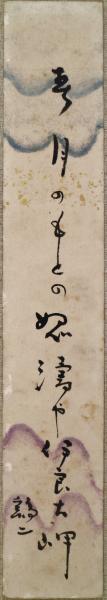 春月のもとの怒濤や伊良古岬
鶏二